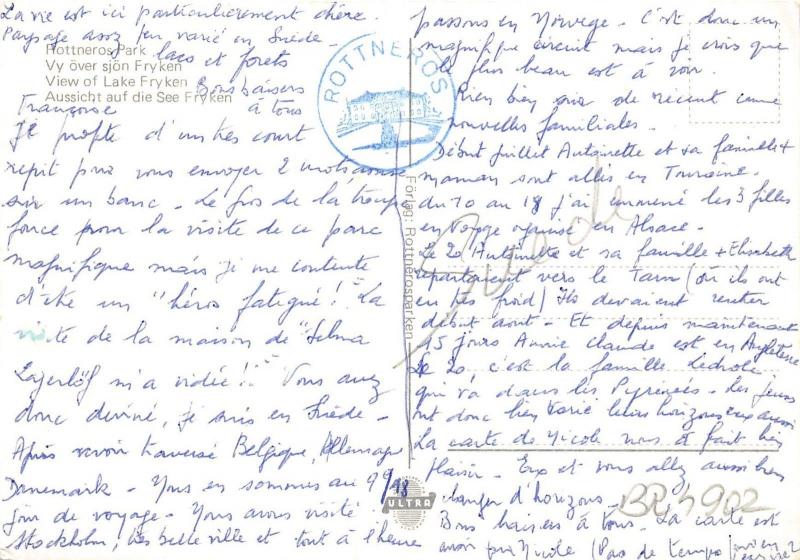 La vie est ici particulièrement chère.
Paysage assez peu varié en Suède.
lacs et forêts
Bons baisers
à tous
Françoise
Rottneros Park
Vy över sjön Fryken
View of Lake Fryken
Aussicht auf die See Fryken
ROTTNEROS
Je profite d'un très court
répit pour vous envoyer 2 mots, assise
sur un banc. Le gros de la troupe
fonce pour la visite de ce parc
magnifique mais je me contente
d'être un "héros fatigué"! La
visite de la maison de "Selma
Lagerlöf m'a vidée!!" Vous avez
donc deviné, je suis en Suède.
Après avoir traversé Belgique, Allemagne
Danemark. Nous en sommes au 9e/18
jour de voyage. Nous avons visité
Stockholm, très belle ville et tout à l'heure
passons en Norvège. C'est donc un
magnifique circuit mais je crois que
le plus beau est à voir.
Rien bien sûr de récent comme
nouvelles familiales.
Début Juillet Antoinette et sa famille +
maman sont allés en Touraine.
du 10 au 18 j'ai emmené les 3 filles
en voyage organisé en Alsace.
Le 20 Antoinette et sa famille + Elisabeth
repartaient vers le Tarn (où ils ont
eu très froid) Ils devaient rentrer
début août. Et depuis maintenant
15 jours Annie Claude est en Angleterre
Le 20 c'est la famille
qui va dans les Pyrénées. Les jeunes
ont donc bien varié leurs horizons eux aussi
La carte de Nicole nous a fait bien
plaisir. Eux et vous allez aussi bien
changer d'horizons.
Bons baisers à tous. La carte est
aussi pour Nicole (Pas de temps pour en 2
Förlag: Rottnerosparken
Suède
ULTRA
BR 4902